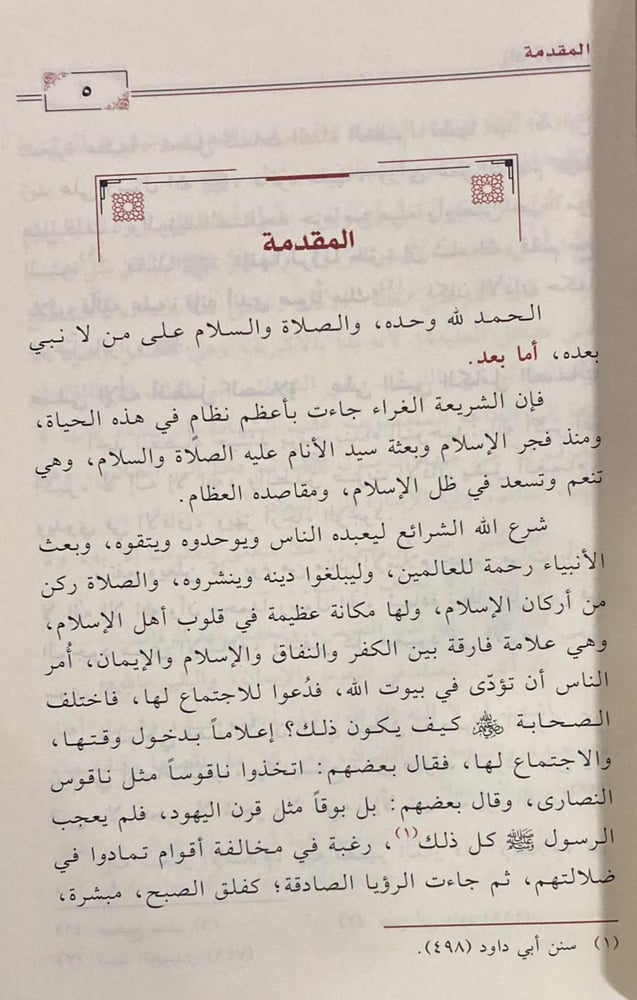 المقدمة
٥
المقدمة
الحمد لله وحده، والصلاة والسلام على من لا نبي
بعده، أما بعد.
فإن الشريعة الغراء جاءت بأعظم نظامٍ في هذه الحياة،
ومنذ فجر الإسلام وبعثة سيد الأنام عليه الصلاة والسلام، وهي
تنعم وتسعد في ظل الإسلام، ومقاصده العظام.
شرع الله الشرائع ليعبده الناس ويوحدوه ويتقوه، وبعث
الأنبياء رحمة للعالمين، وليبلغوا دينه وينشروه، والصلاة ركن
من أركان الإسلام، ولها مكانة عظيمة في قلوب أهل الإسلام،
وهي علامة فارقة بين الكفر والنفاق والإسلام والإيمان، أُمر
الناس أن تؤدّى في بيوت الله، فدُعوا للاجتماع لها، فاختلف
الصحابة رضي الله عنهم كيف يكون ذلك؟ إعلاماً بدخول وقتها،
والاجتماع لها، فقال بعضهم: اتخذوا ناقوساً مثل ناقوس
النصارى، وقال بعضهم: بل بوقاً مثل قرن اليهود، فلم يعجب
الرسول ﷺ كل ذلك(١)، رغبة في مخالفة أقوام تمادوا في
ضلالتهم، ثم جاءت الرؤيا الصادقة؛ كفلق الصبح، مبشرة،
(١) سنن أبي داود (٤٩٨).